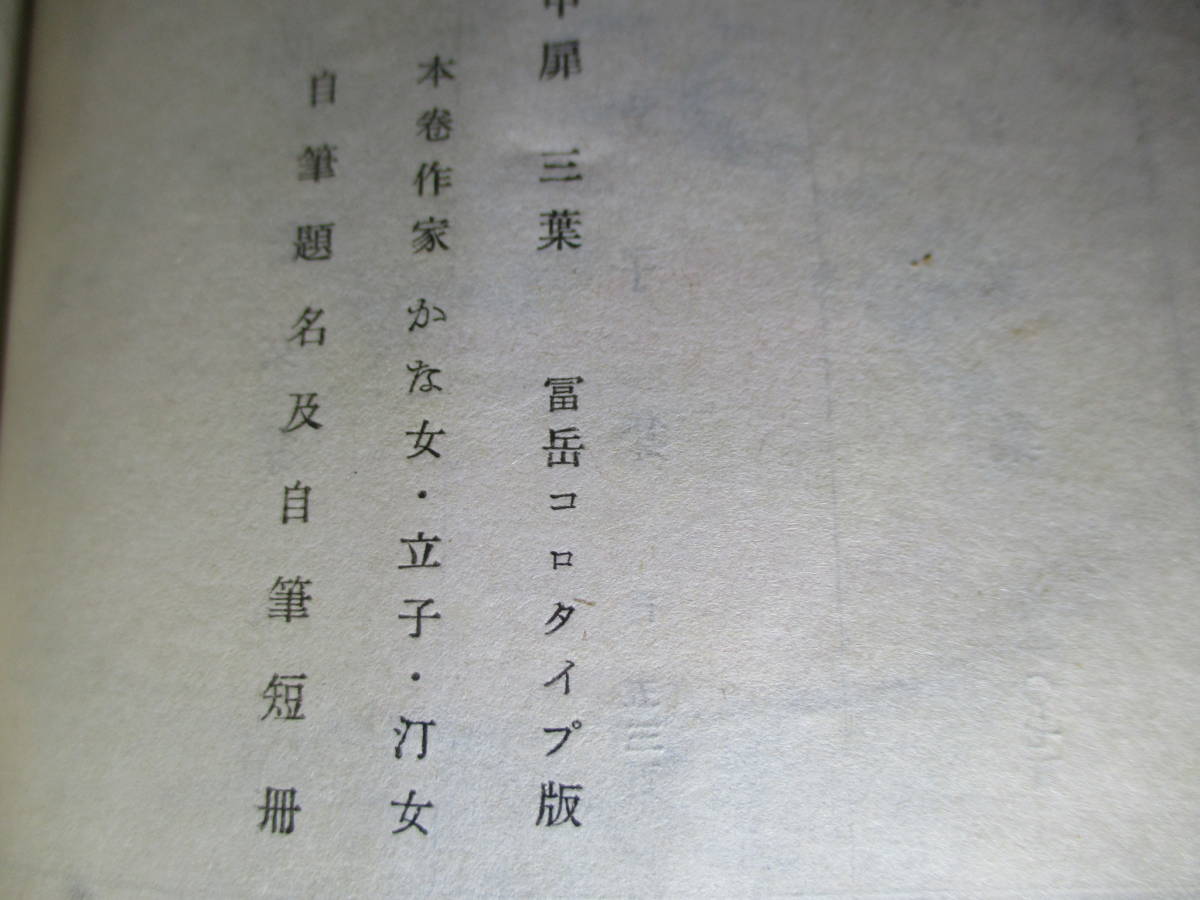 中扉 三葉 冨岳コロタイプ版
本巻作家 かな女・立子・汀女
自筆題名及自筆短冊